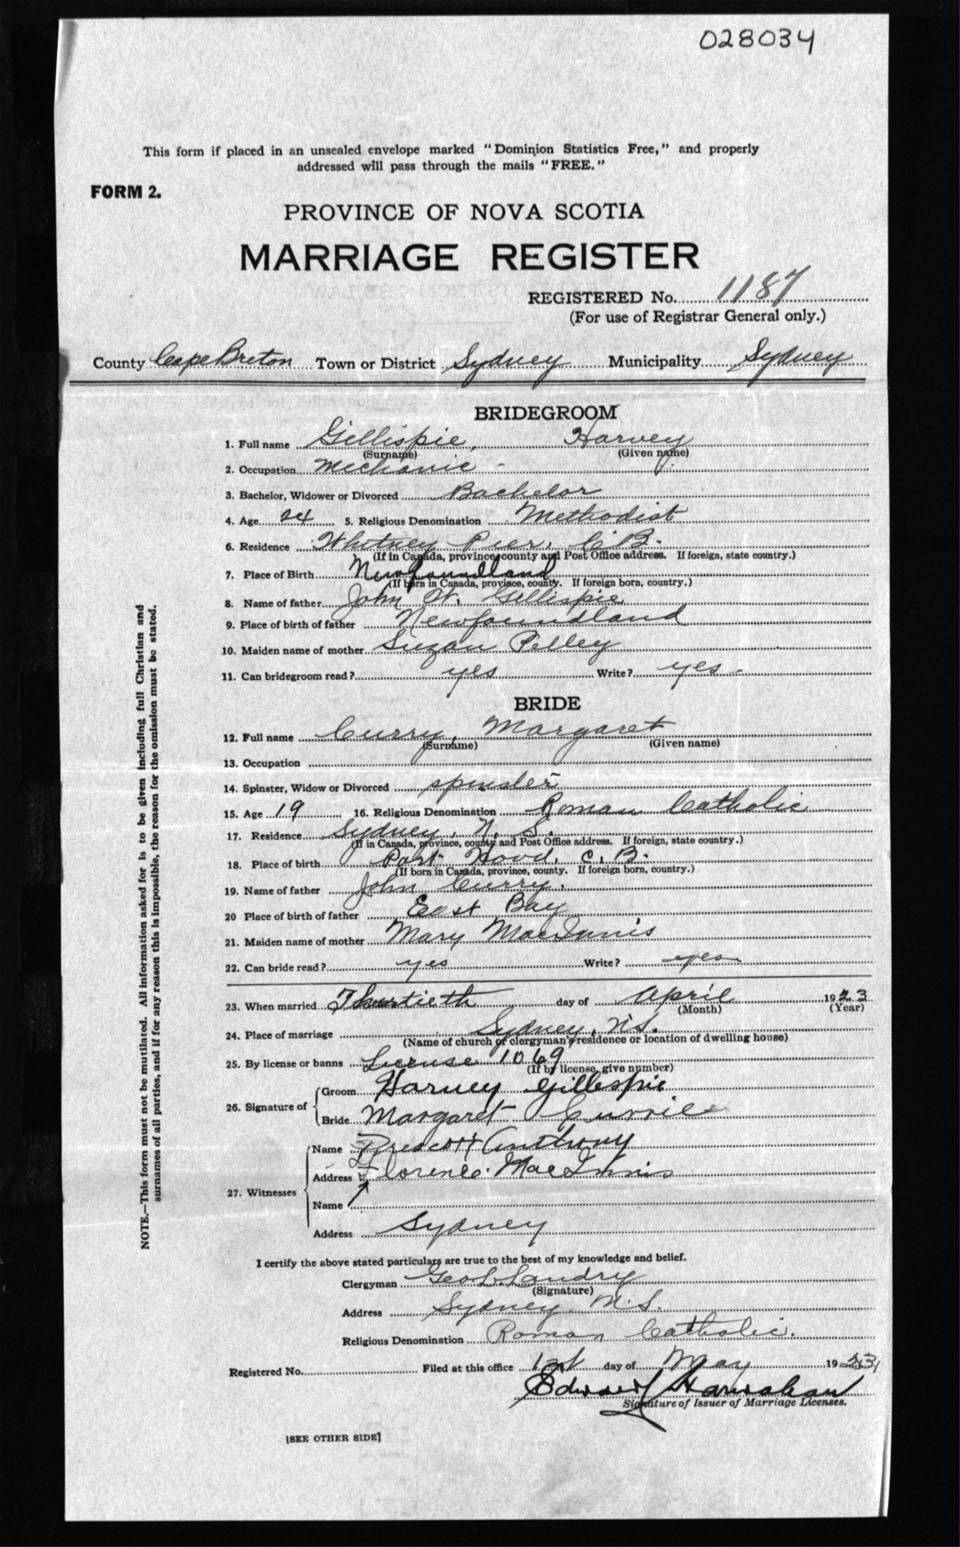 028034
This form if placed in an unsealed envelope marked "Dominion Statistics Free," and properly
addressed will pass through the mails "FREE."
FORM 2.
PROVINCE OF NOVA SCOTIA
MARRIAGE REGISTER
REGISTERED No. 1187
(For use of Registrar General only.)
County Cape Breton Town or District Sydney Municipality Sydney
BRIDEGROOM
1. Full name Gillispie, Harvey
(Surname) (Given name)
2. Occupation Mechanic -
3. Bachelor, Widower or Divorced Bachelor
4. Age 24 5. Religious Denomination Methodist
6. Residence Whitney Pier, C.B.
(If in Canada, province, county and Post Office address. If foreign, state country.)
7. Place of Birth Newfoundland
(If born in Canada, province, county. If foreign born, country.)
8. Name of father John W. Gillispie
9. Place of birth of father Newfoundland
10. Maiden name of mother Suzan Pelley
11. Can bridegroom read? yes Write? yes
BRIDE
12. Full name Curry, Margaret
(Surname) (Given name)
13. Occupation
14. Spinster, Widow or Divorced spinster
15. Age 19 16. Religious Denomination Roman Catholic
17. Residence Sydney, N. S.
(If in Canada, province, county and Post Office address. If foreign, state country.)
18. Place of birth Port Hood, C. B.
(If born in Canada, province, county. If foreign born, country.)
19. Name of father John Curry,
20 Place of birth of father East Bay
21. Maiden name of mother Mary MacInnis
22. Can bride read? yes Write? yes
23. When married Thirtieth day of April 1923
(Month) (Year)
24. Place of marriage Sydney, N.S.
(Name of church or clergyman's residence or location of dwelling house)
25. By license or banns License 1069
(If by license, give number)
26. Signature of Groom Harvey Gillespie
Bride Margaret Currie
27. Witnesses Name Prescott Anthony
Address Florence MacInnis
Name
Address Sydney
I certify the above stated particulars are true to the best of my knowledge and belief.
Clergyman Geo L. Landry
(Signature)
Address Sydney N.S.
Religious Denomination Roman Catholic.
Registered No. Filed at this office 1st day of May 1923
Edward Hanrahan
Signature of Issuer of Marriage Licenses.
[SEE OTHER SIDE]
NOTE.—This form must not be mutilated. All information asked for is to be given including full Christian and
surnames of all parties, and if for any reason this is impossible, the reason for the omission must be stated.